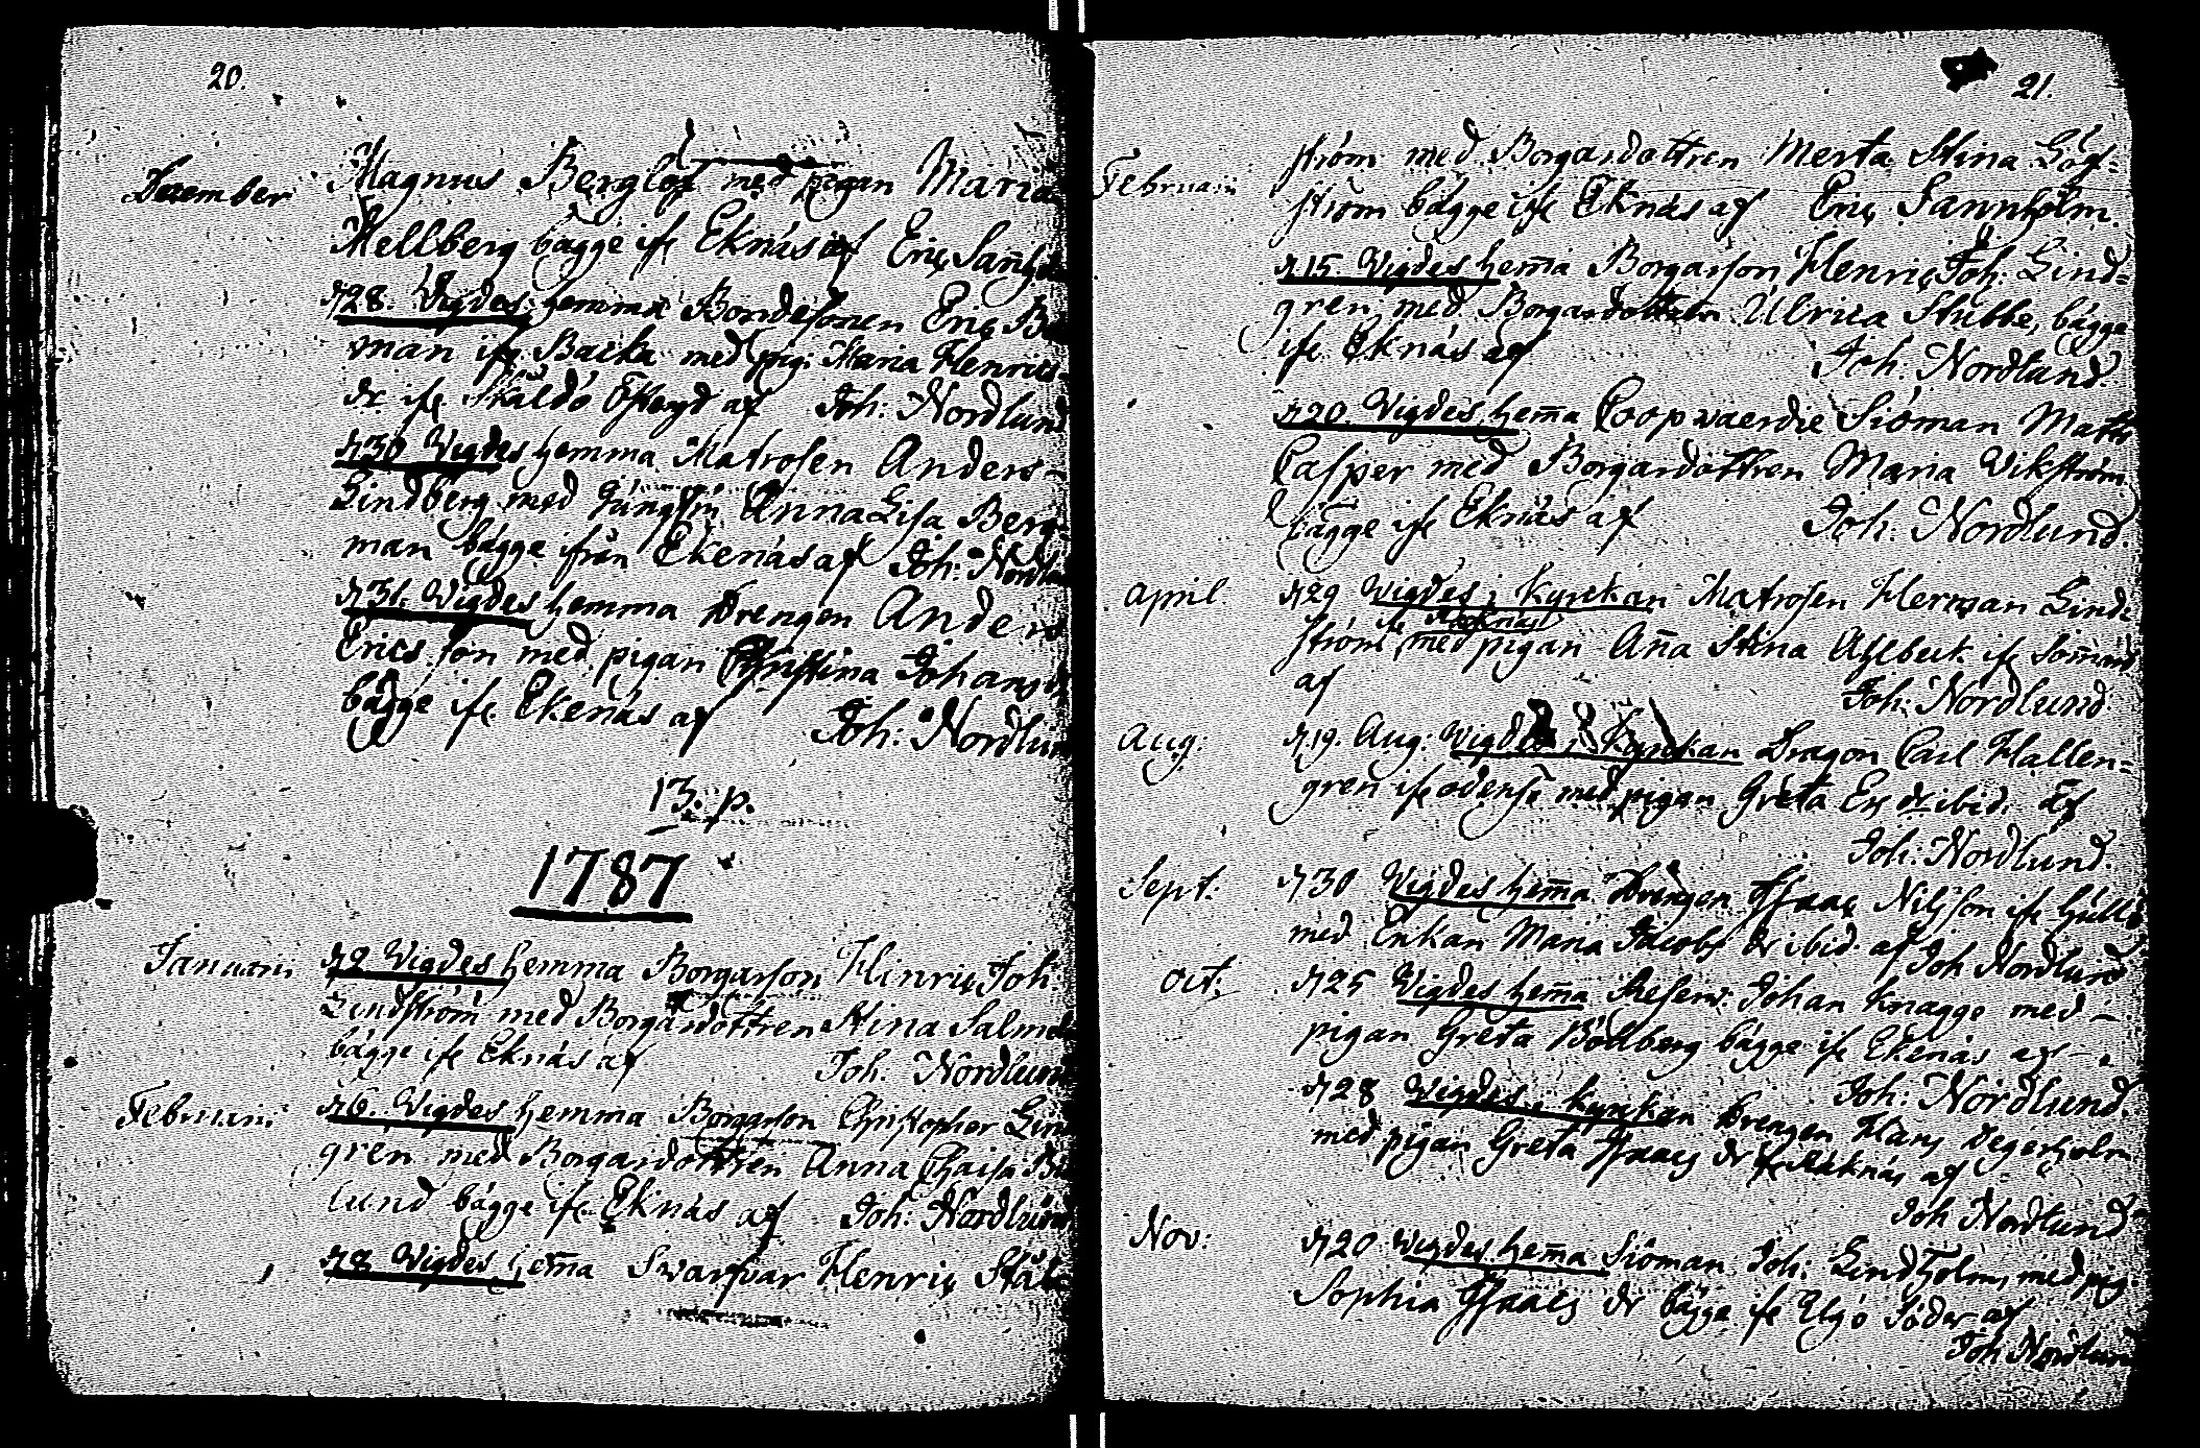 20.
December Magnus Berglöf med pigan Maria
Mellberg bägge ifr Eknäs af Eric Sanh
d 28 Vigdes hemma Bondesonen Eric
man ifr Backa med pig. Maria Henrics
dr ifr Skåldö af Joh: Nordlund
d 30 Vigdes hemma Matrosen Anders
Lindberg med Anna Lisa Berg-
man bägge ifrån Ekenäs af Joh: Nordlu
d 31. Vigdes hemma Drengen Anders
Ericsson med pigan Christina Johans dr
bägge ifr Ekenäs af Joh: Nordlun
13. p.
1787
Januarii d 2 Vigdes hemma Borgarson Hinric Joh.
Lindström med Borgardottren Stina Salmel
bägge ifr Eknäs af Joh. Nordlund
Februarii d 6. Vigdes hemma Borgarson Christopher Lin
gren med Borgardottren Anna Chaisa
lund bägge ifr Eknäs af Joh: Nordlund
d 8 Vigdes hema Swarfvar Henric Stål
21.
Februarii ström med Borgardottren Merta Stina Lög-
ström bägge ifr Eknäs af Eric Sannholm.
d 15. Vigdes hema Borgarson Henric Joh: Lind-
gren med Borgardottren Ulrica Stubbe, bägge
ifr Eknäs af Joh: Nordlund.
d 20. Vigdes hema Coopwaerdie Siöman Math
Casper med Borgardottren Maria Vikström
bägge ifr Eknäs af Joh: Nordlund.
April d 29 Vigdes i Kyrckan Matrosen Herman Lind-
ifr
ström med pigan Ana Stina Ahlbeck ifr
af Joh: Nordlund.
Aug: d 19. Aug: Wigdes i Kyrckan Dragon Carl Hallen-
gren ifr odensö med pigan Greta Er. dr ibid. af
Joh: Nordlund.
Sept: d 30 Vigdes hema Drengen Isaac Nilsson ifr
med Enkan Maria Jacobs dr ibid. af Joh Nordlund
Oct: d 25 Vigdes hema Johan Knagge med
pigan Greta Bödberg bägge ifr Ekenäs af
Joh: Nordlund.
d 28 Vigdes i Kyrckan Drengen Hans Degerholm
med pigan Greta Isaacs dr ifr af
Joh Nordlund
Nov: d 20 Vigdes hema Siöman Joh: Lindholm, med pig.
Sophia Isaacs dr bägge ifr Elgö Söder af
Joh Nordlund